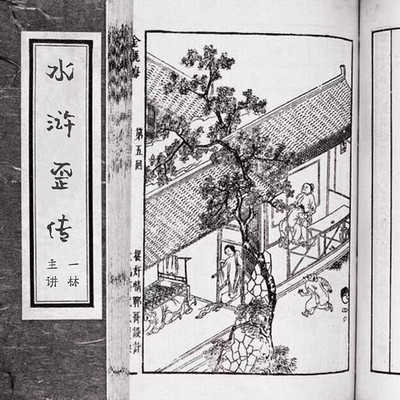 水浒歪传
一林
主讲
金瓶梅
第五回
捉奸情鄆哥設計